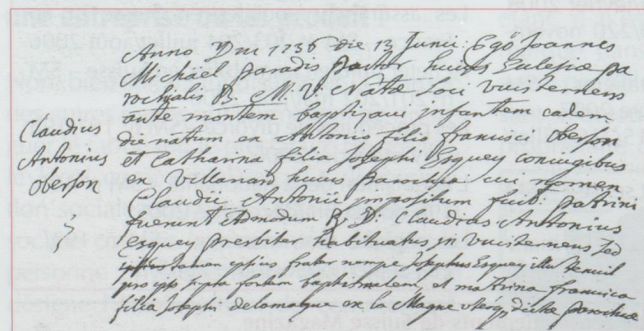 Anno Dni 1736 die 13 Junii Egō Joannes
Michaël paradis pastor huius Eclesiæ pa
rochialis B. M. V. Natæ loci vuisternens
ante montem baptizavi infantem eadem
die natum ex Antonio filio francisci oberson
et Catharina filia Josephi Esquey coniugibus
ex villariaz huius parochiæ cui nomen
Claudii Antonii impositum fuit: patrini
fuerunt R. D. Claudius Antonius
Esquey presbiter habituatus in vuisternens sed
frater nempe Josephus Esquey illum tenuit
fontem baptismalem, et matrina francisca
filia Josephi delamagne ex la Magne dictæ parochiæ
Claudius
Antonius
oberson